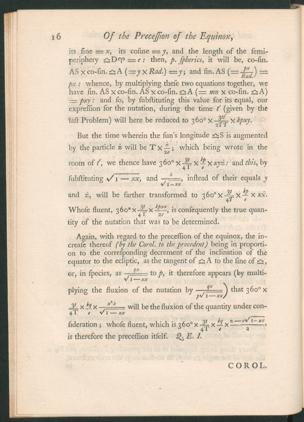 16 Of the Precession of the Equinox,
its sine = x, its cosine = y, and the length of the semi-
periphery ♎D♈ = e: then, p. spherics, it will be, co-sin.
AS × co-sin. ♎A (= y × Rad.) = y; and sin. AS (= px/Rad.) =
px: whence, by multiplying these two equations together, we
have sin. AS × co-sin. AS × co-sin. ♎A
= pxy: and so, by substituting this value for its equal, our
expression for the nutation, during the time t' (given by the
last Problem) will here be reduced to 360° ×
But the time wherein the sun's longitude ♎S is augmented
by the particle ż will be T × ; which being wrote in the
room of t', we thence have 360° × : and this, by
substituting √1 − xx, and ẋ/√1 − xx, instead of their equals y
and ż, will be farther transformed to 360° × × xẋ.
Whose fluent, 360° × , is consequently the true quan-
tity of the nutation that was to be determined.
Again, with regard to the precession of the equinox, the in-
crease thereof (by the Corol. to the precedent) being in proporti-
on to the corresponding decrement of the inclination of the
equator to the ecliptic, as the tangent of ♎A to the sine of ♎,
or, in species, as to p, it therefore appears (by multi-
plying the fluxion of the nutation by ) that 360° ×
will be the fluxion of the quantity under con-
sideration; whose fluent, which is 360° ×
is therefore the precession itself. Q. E. I.
COROL.